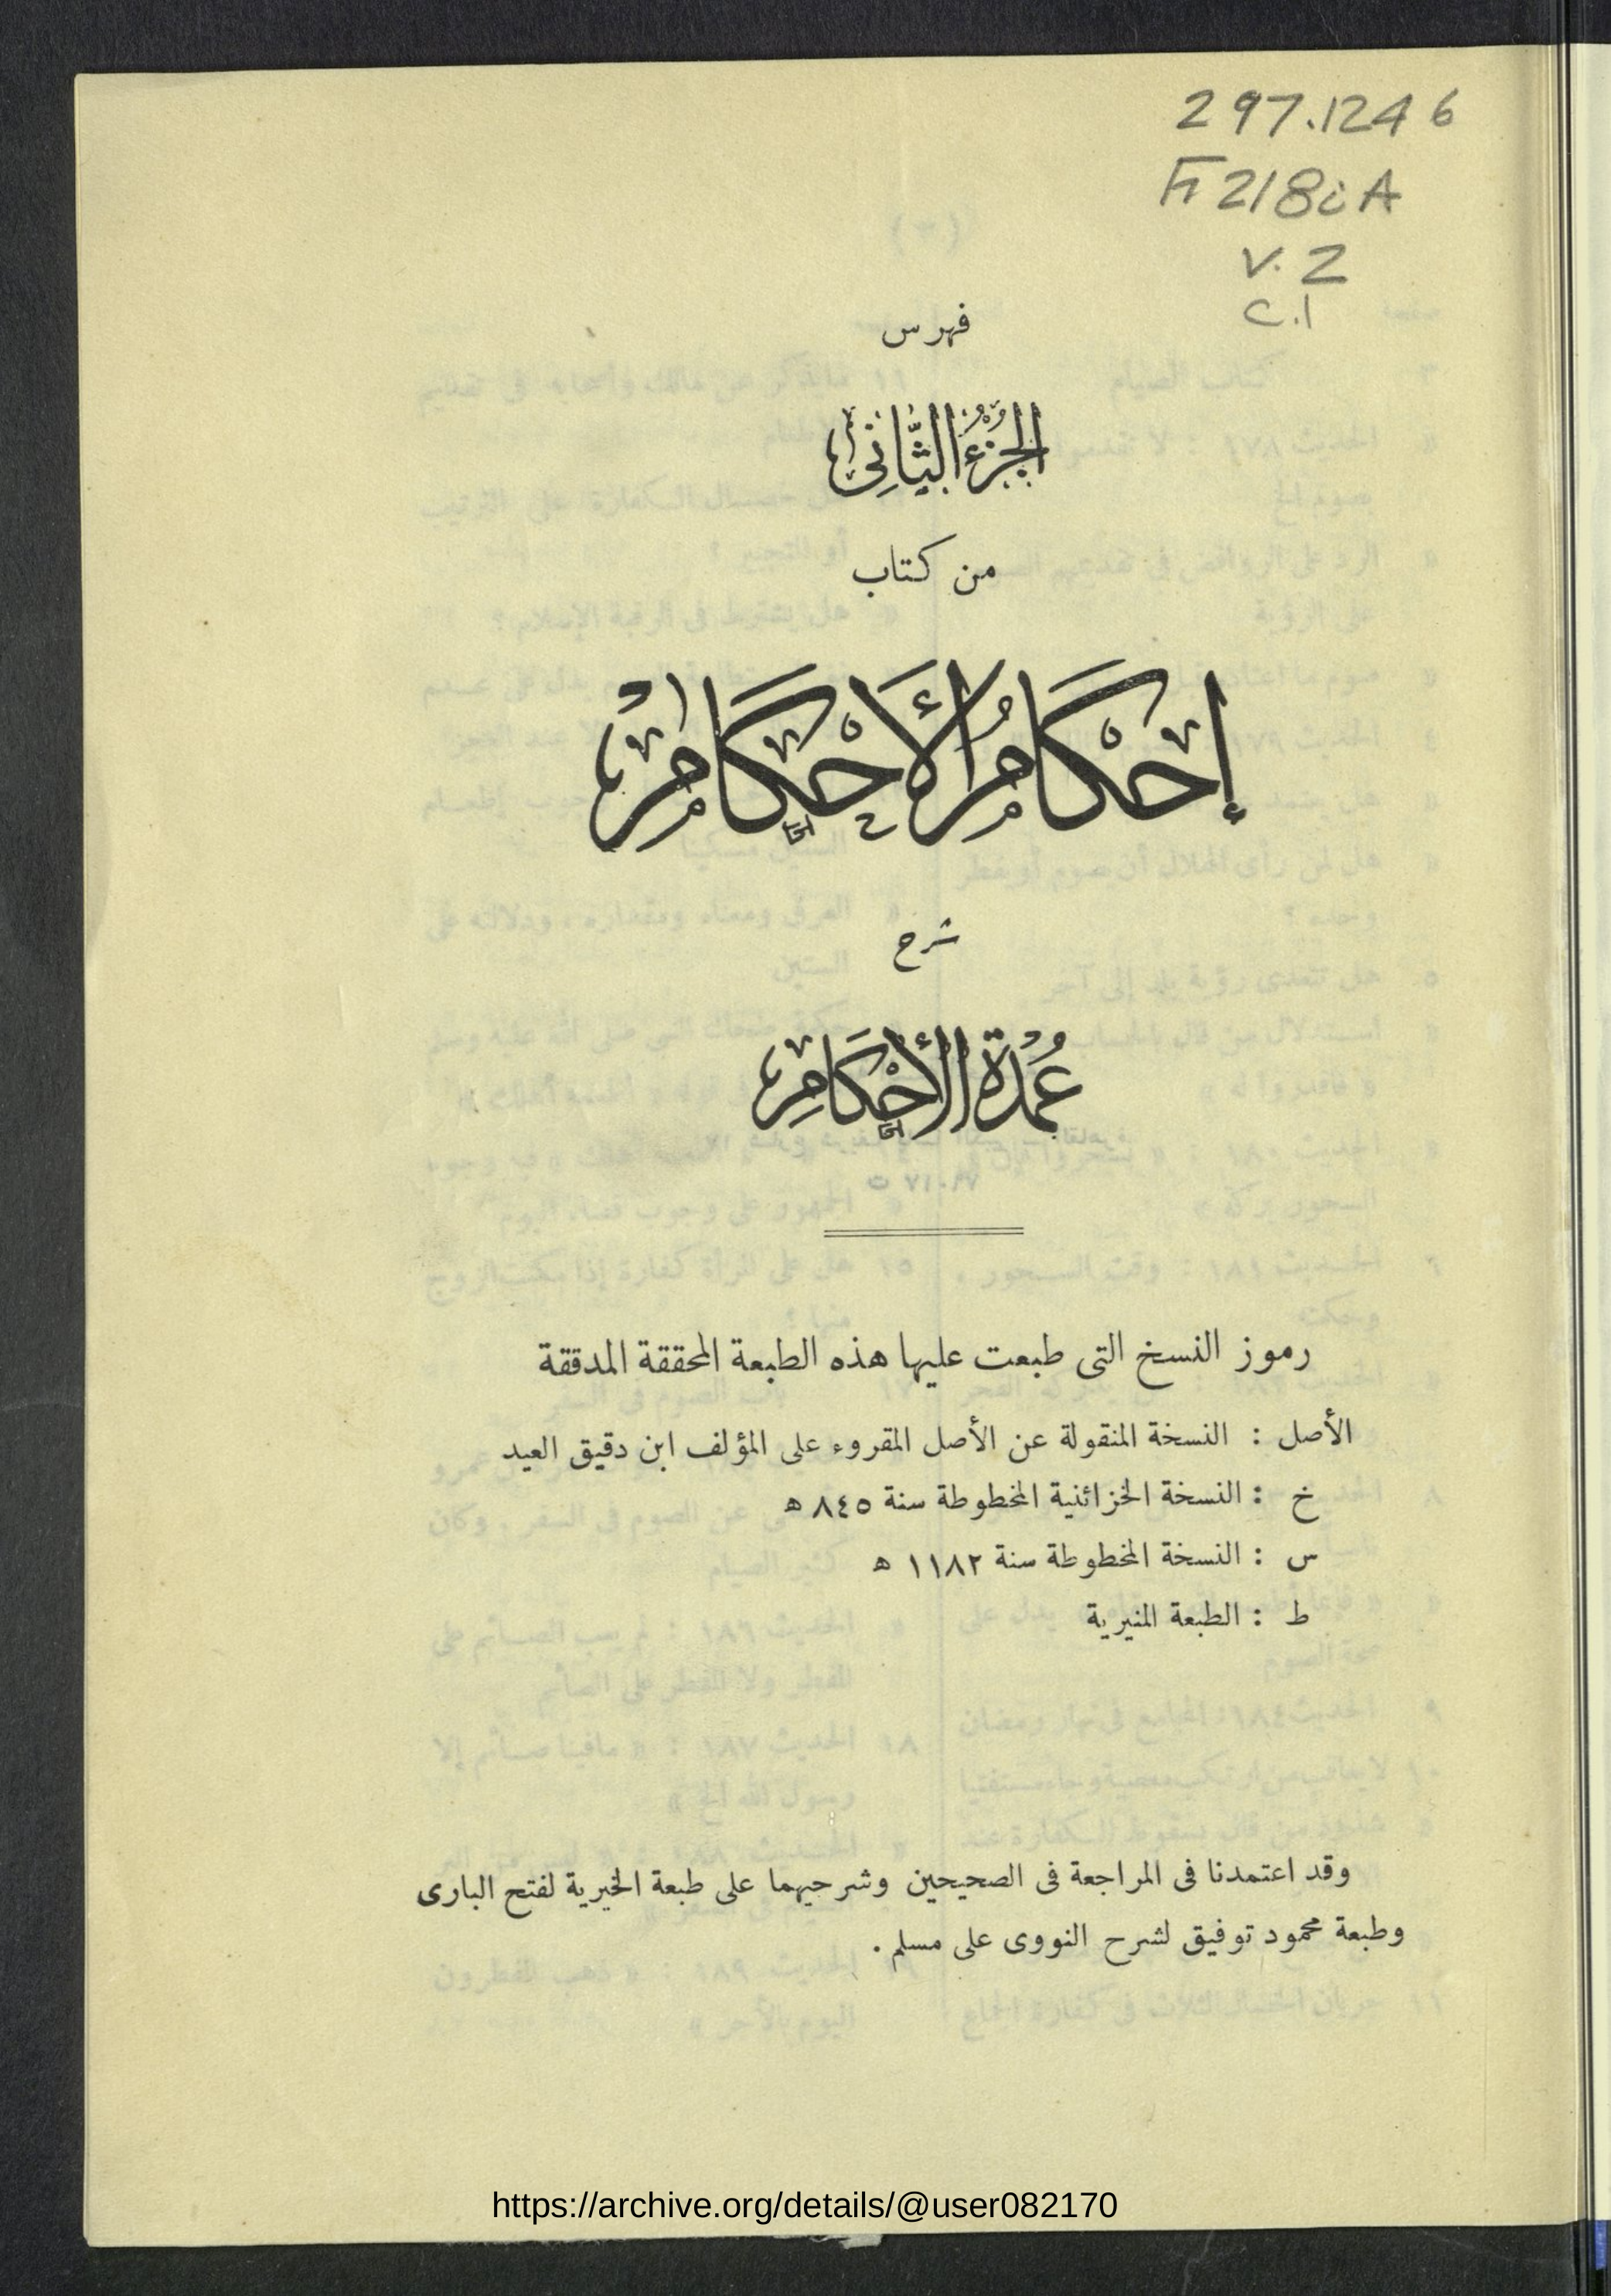 297.1246
F218iA
V.2
C.1
فهرس
الجُزْءُ الثَّانِي
من كتاب
إِحْكَامُ الأَحْكَامِ
شرح
عُمْدَةُ الأَحْكَامِ
رموز النسخ التى طبعت عليها هذه الطبعة المحققة المدققة
الأصل : النسخة المنقولة عن الأصل المقروء على المؤلف ابن دقيق العيد
خ : النسخة الخزائنية المخطوطة سنة ٨٤٥ ه
س : النسخة المخطوطة سنة ١١٨٢ ه
ط : الطبعة المنيرية
وقد اعتمدنا فى المراجعة فى الصحيحين وشرحيهما على طبعة الخيرية لفتح البارى
وطبعة محمود توفيق لشرح النووى على مسلم .
https://archive.org/details/@user082170